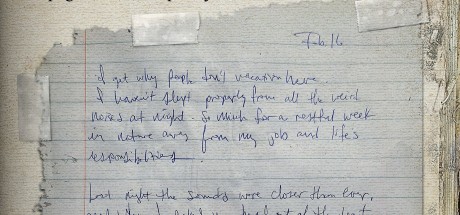 Feb 16
I get why people don't vacation here.
I haven't slept properly from all the weird
noises at night. So much for a restful week
in nature away from my job and life's
responsibilities
Last night the sounds were closer than ever,